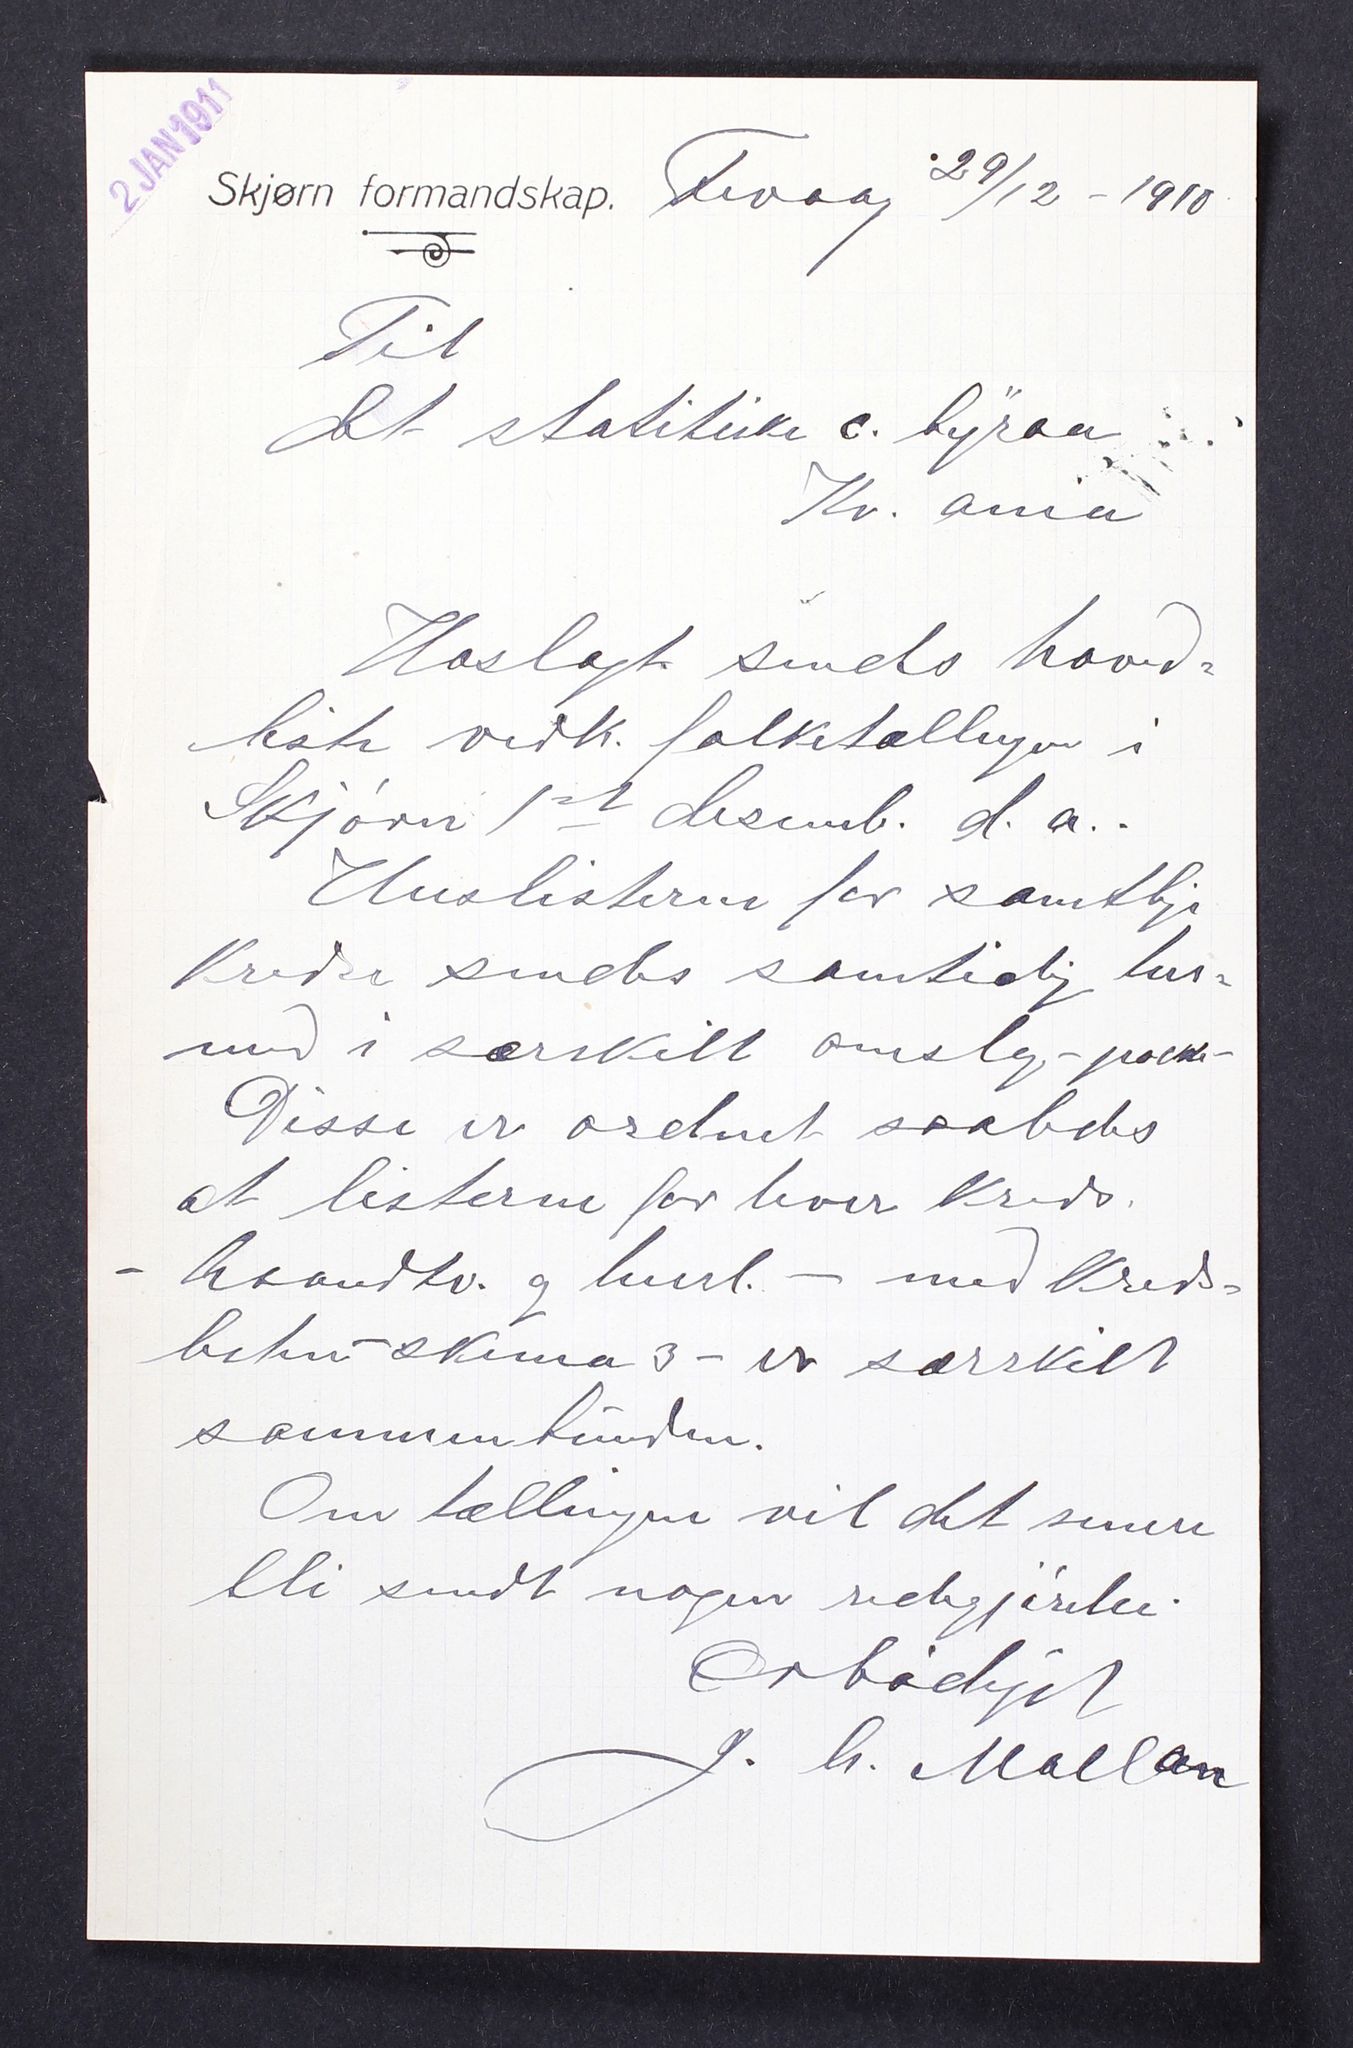 2 JAN 1911
Skjørn formandskap. Fevaag 29/12 - 1910
Til
det statistiske c. byraa
Kr. ania
Hoslagt sendes hoved-
liste vedk. folketællingen i
Skjørn 1st desemb. d. a..
Huslisterne for samtlige
kredse sendes samtidig her-
med i særskilt omslag - pakke -
Disse er ordnet saaledes
at listerne for hver kreds.
- haandsv. og husl. - med kreds-
listen - skema 3 - er særskilt
sammenbunden.
Om tællingen vil det senere
bli sendt nogen redegjørelse.
Ærbødigst
J. H. Mallan